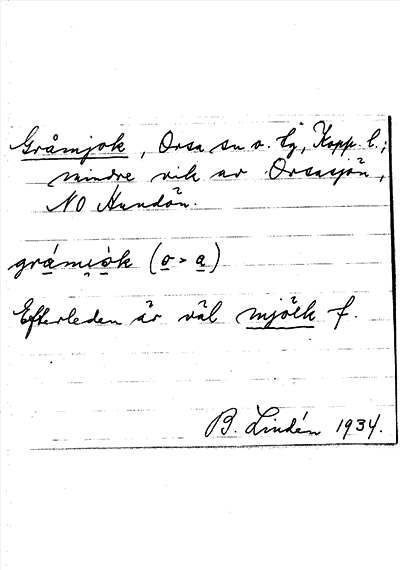 Gråmjok, Orsa sn o. tg, Kopp. l.;
mindre vik av Orsasjön,
NO Hundön.
grámi̯ò̱k (o > a)
Efterleden är väl mjölk f.
B. Lindén 1934.